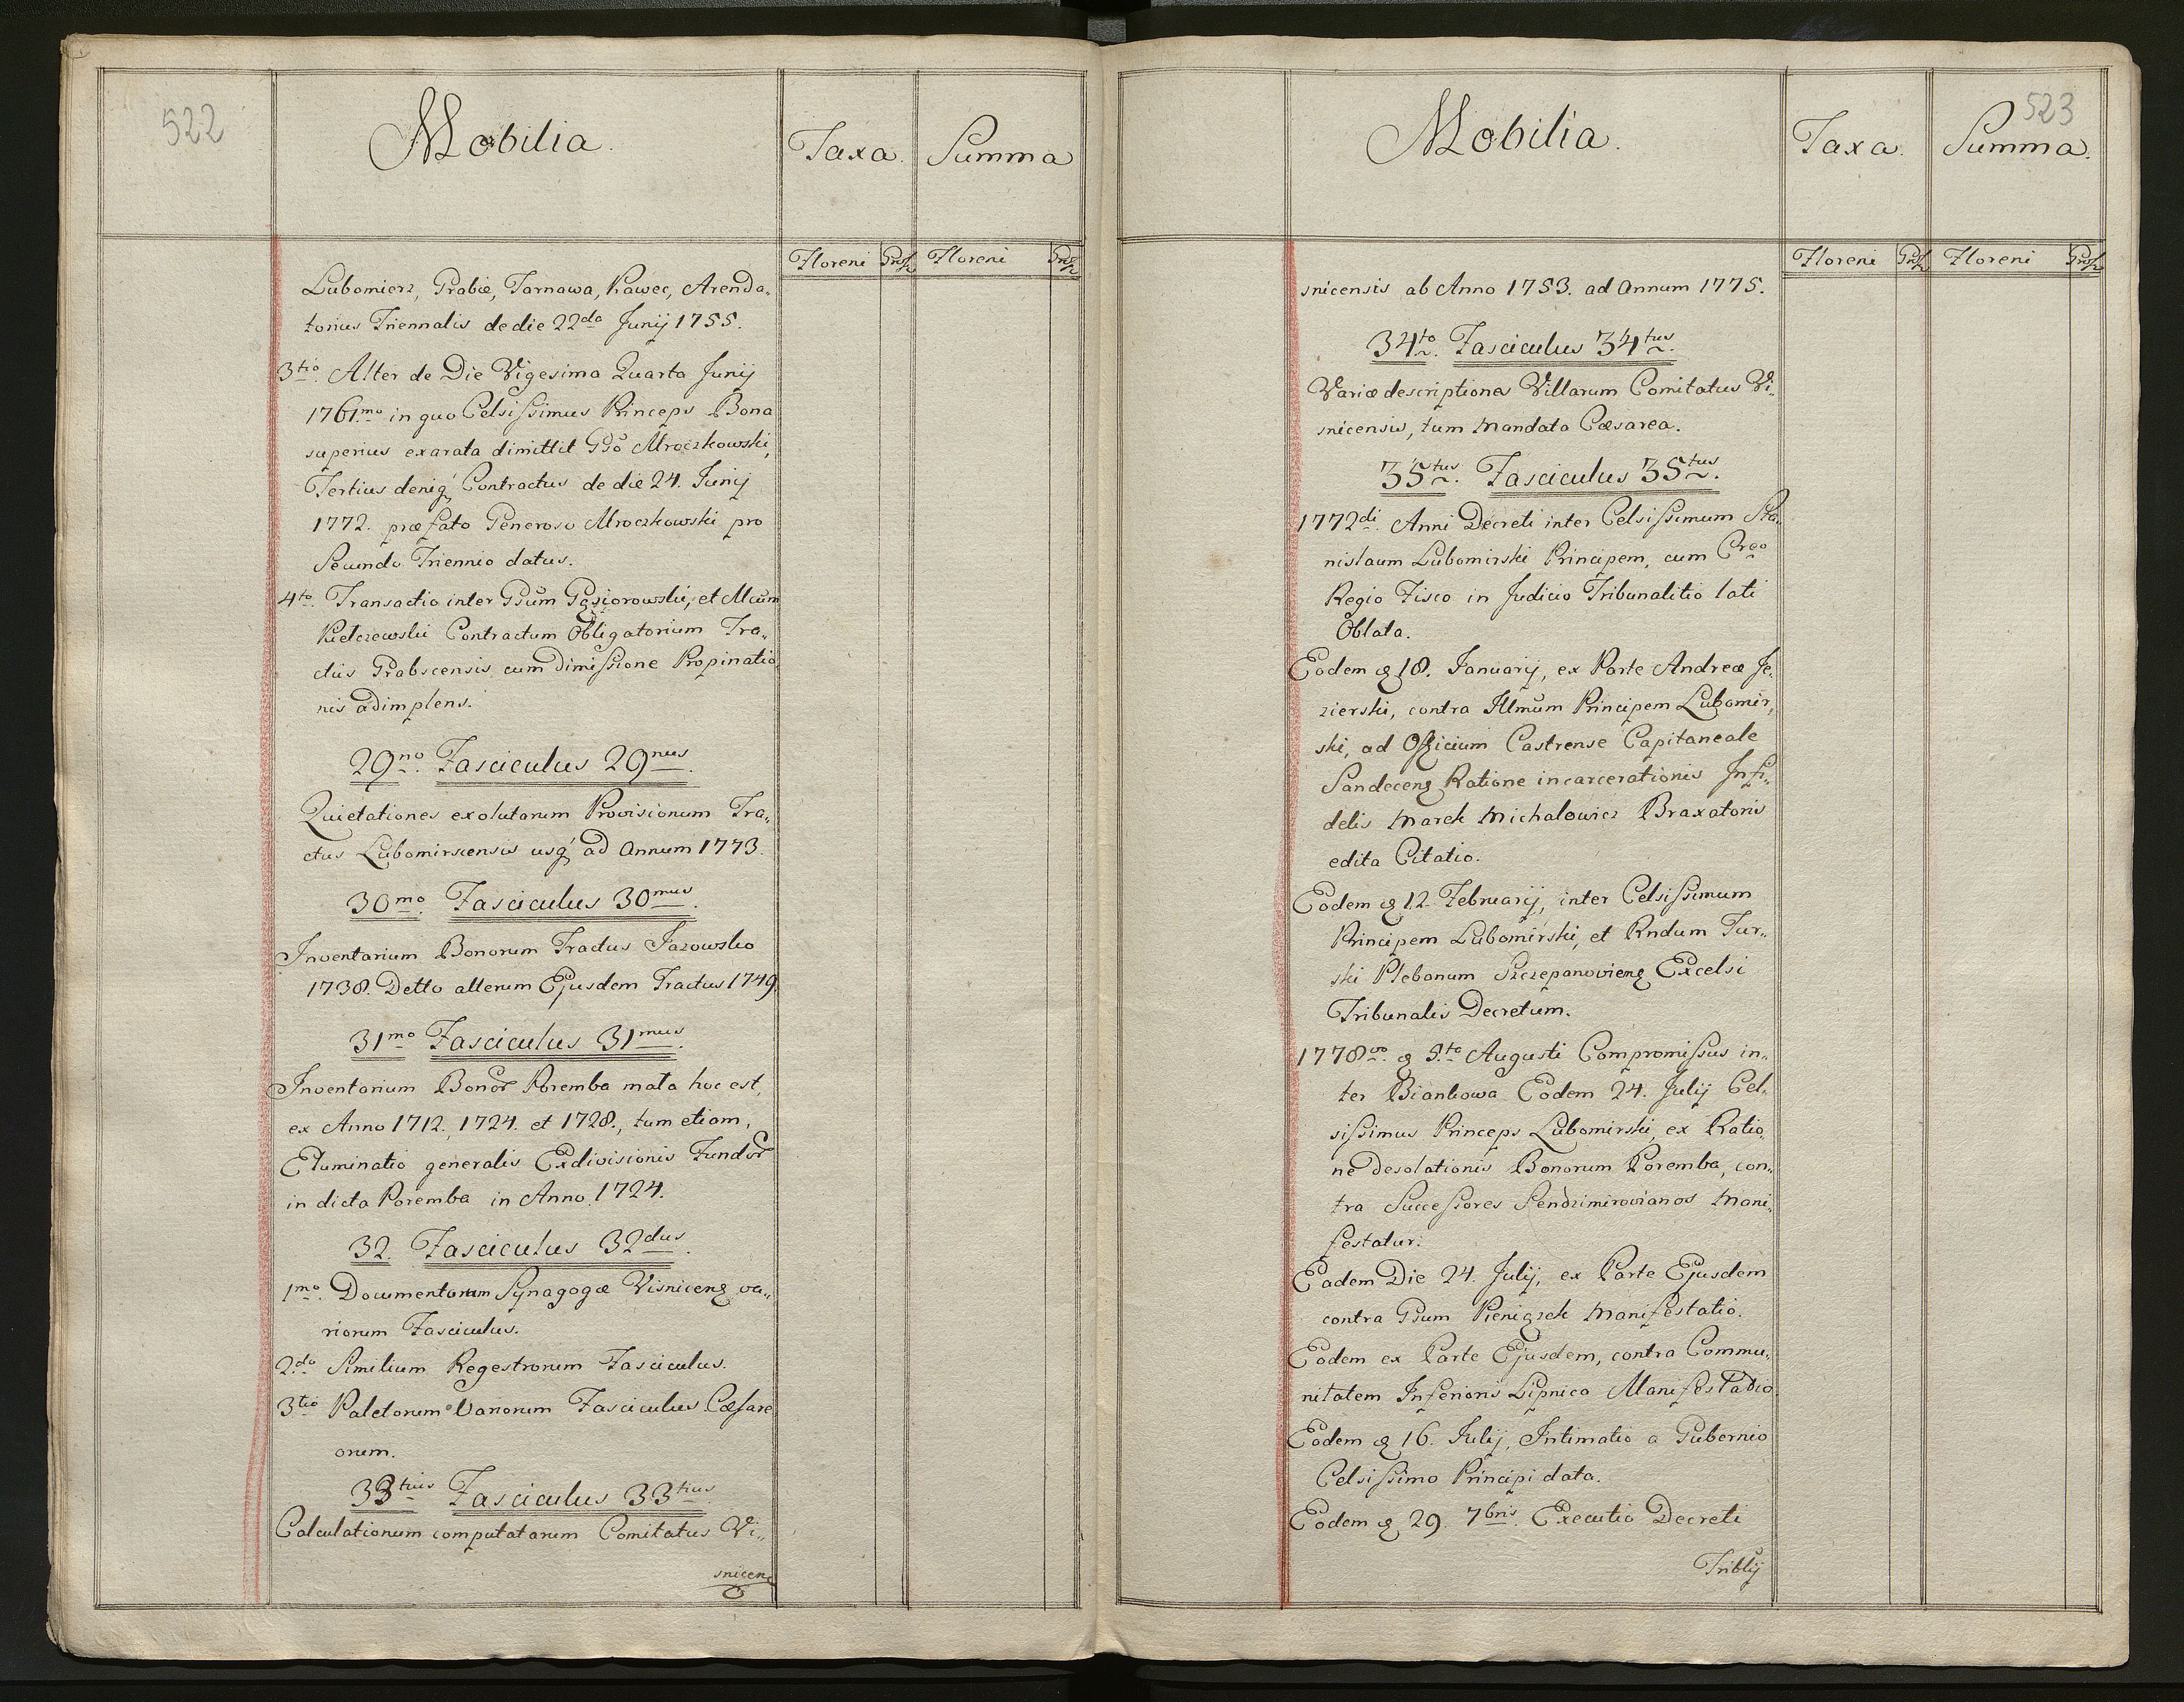 522
Mobilia.
Taxa.
Summa
Floreni
Floreni
Lubomierz, Grabie, Tarnawa, Rawec, Arenda„
torius Triennalis de die 22da Junij 1755.
3tio. Alter de Die Vigesima Quarta Junij
1761mo in quo Celsissimus Princeps Bona
superius exarata dimittit Gso Mroczkowski,
Tertius deniq' Contractus de die 24. Junij
1772. præfato Generoso Mroczkowski pro
Secundo Triennio datus.
4to. Transactio inter Gsum Gąsiorowski, et Mcum
Kielczewski Contractum Obligatorium Tra„
ctus Grabscensis cum dimissione Propinatio
nis adimplens.
29no. Fasciculus 29nus.
Quietationes exolutarum Provisionum Tra„
ctus Lubomirscensis usq' ad Annum 1773.
30mo. Fasciculus 30mus.
Inventarium Bonorum Tractus Jazowsko
1738. Detto alterum Ejusdem Tractus 1749.
31mo Fasciculus 31mus.
Inventarium Bonor Poremba mala hoc est,
ex Anno 1712., 1724. et 1728., tum etiam,
Eluminatio generalis Exdivisionis Fundor
in dicta Poremba in Anno. 1724.
32. Fasciculus 32dus.
1mo. Documentorum Synagogæ Visnicens va„
riorum Fasciculus.
2do Similium Regestrorum Fasciculus.
3tio Paletorum Variorum Fasciculus Cæsare
orum.
33tius Fasciculus 33tius.
Calculationum computatarum Comitatus Vi„
snicens
523
Mobilia.
Taxa.
Summa.
Floreni
Floreni
snicensis ab Anno 1753. ad Annum 1775.
34to. Fasciculus 34tus.
Variæ descriptiones Villarum Comitatus Vi„
snicensis, tum Mandata Cæsarea.
35tus. Fasciculus 35tus.
1772di. Anni Decreti inter Celsissimum Sta„
nislaum Lubomirski Principem, cum
Regio Fisco in Judicio Tribunalitio lati
Oblata.
Eodem 18. Januarij, ex Parte Andreæ Je„
zierski, contra Illmum Principem Lubomir„
ski, ad Officium Castrense Capitaneale
Sandecens Ratione incarcerationis Infi„
delis Marek Michalowicz Braxatoris
edita Citatio.
Eodem 12. Februarij, inter Celsissimum
Principem Lubomirski, et Rndum Tur„
ski Plebanum Szczepanoviens Excelsi
Tribunalis Decretum.
1778vo. 5.to Augusti Compromissus in„
ter Biankowa Eodem 24. Julij Cel„
sissimus Princeps Lubomirski, ex Ratio„
ne desolationis Bonorum Poremba, con„
tra Successores Sendzimirovianos Mani„
festatur.
Eadem Die 24. Julij, ex Parte Ejusdem
contra Gsum Pieniązek Manifestatio.
Eodem ex Parte Ejusdem, contra Commu„
nitatem Inferioris Lipnica Manifestatio.
Eodem 16. Julij, Intimatio a Gubernio
Celsissimo Principi data.
Eodem 29. 7bris. Executio Decreti
Triblij